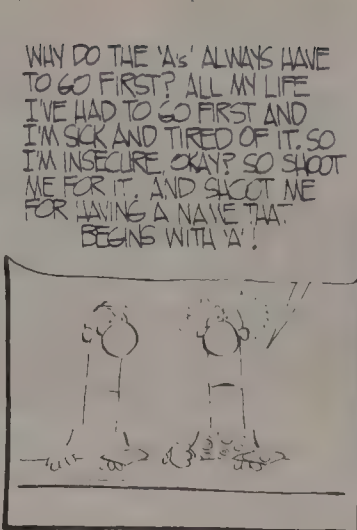 WHY DO THE 'A's' ALWAYS HAVE
TO GO FIRST? ALL MY LIFE
I'VE HAD TO GO FIRST AND
I'M SICK AND TIRED OF IT. SO
I'M INSECURE, OKAY? SO SHOOT
ME FOR IT. AND SHOOT ME
FOR HAVING A NAME THAT
BEGINS WITH 'A'!